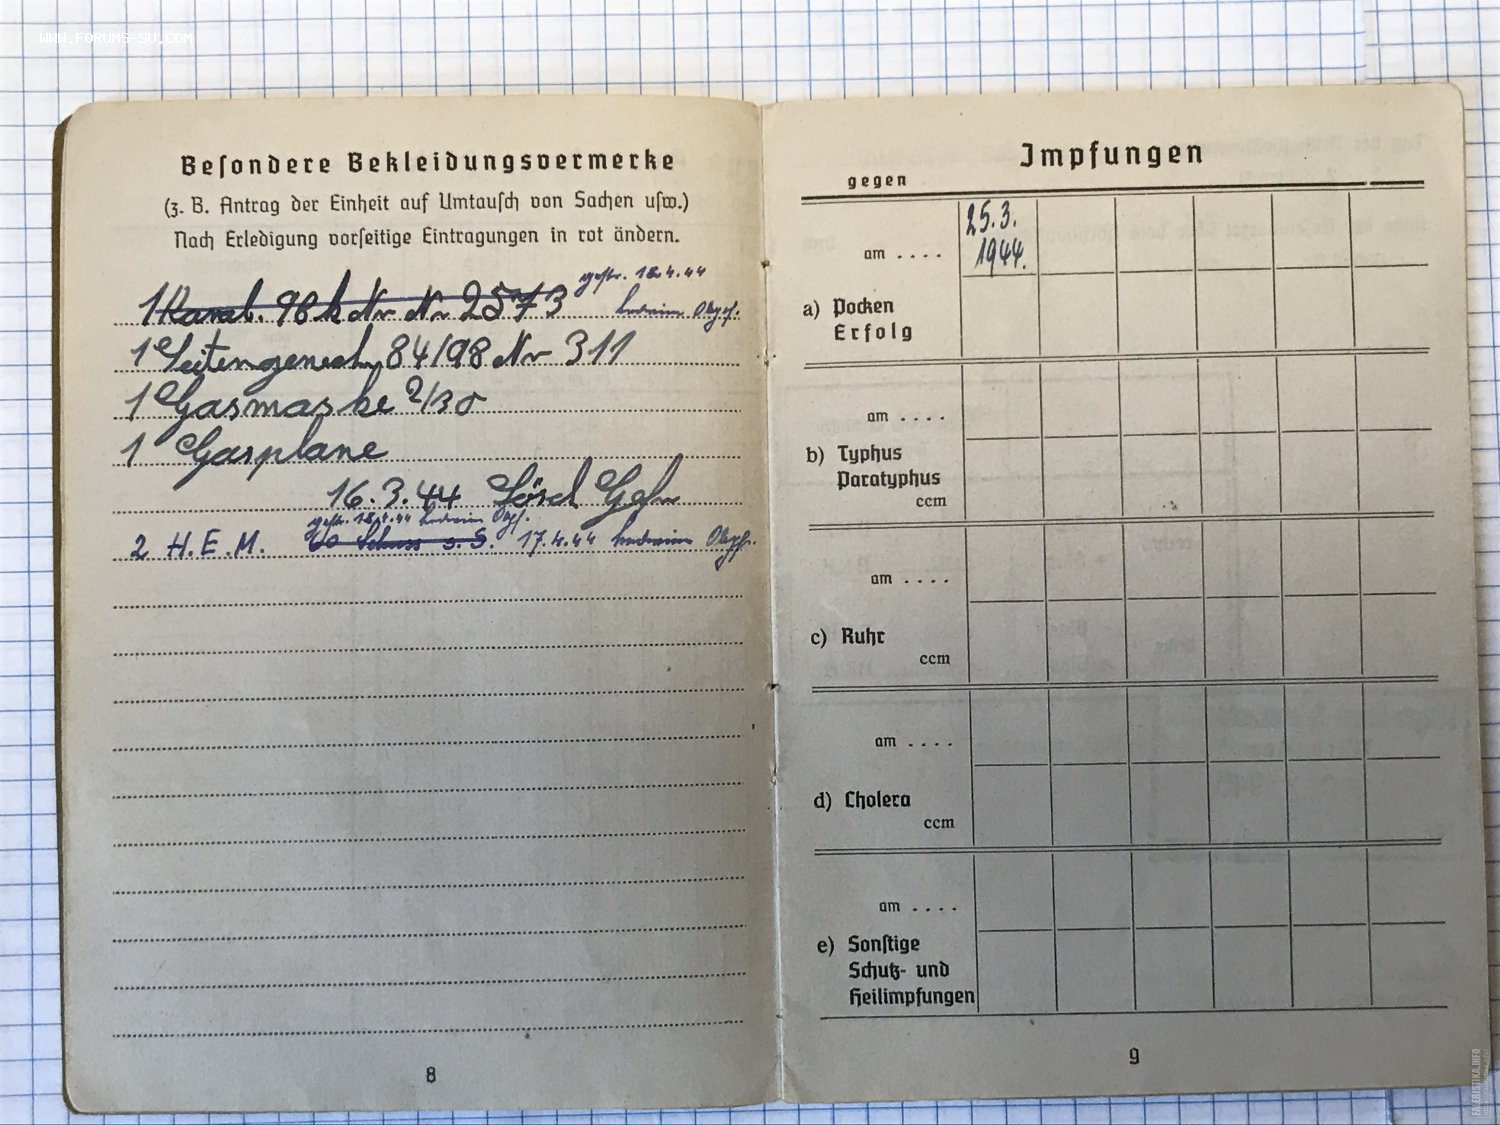 WWW.FORUMS-SU.COM
Besondere Bekleidungsvermerke
(z. B. Antrag der Einheit auf Umtausch von Sachen usw.)
Nach Erledigung vorseitige Eintragungen in rot ändern.
gestr. 18.4.44
1 Karab. 98 k Nr Nr 2573 Obgf.
1 Seitengewehr 84/98 Nr 311
1 Gasmaske 2/30
1 Gasplane
16.3.44
gestr. 18.4.44
2 H.E.M. 60 Schuss s.S. 17.4.44
8
Impfungen
gegen
am . . . . 25.3.
1944.
a) Pocken
Erfolg
am . . . .
b) Typhus
Paratyphus
ccm
am . . . .
c) Ruhr
ccm
am . . . .
d) Cholera
ccm
am . . . .
e) Sonstige
Schutz- und
Heilimpfungen
9
FALERISTIKA.INFO